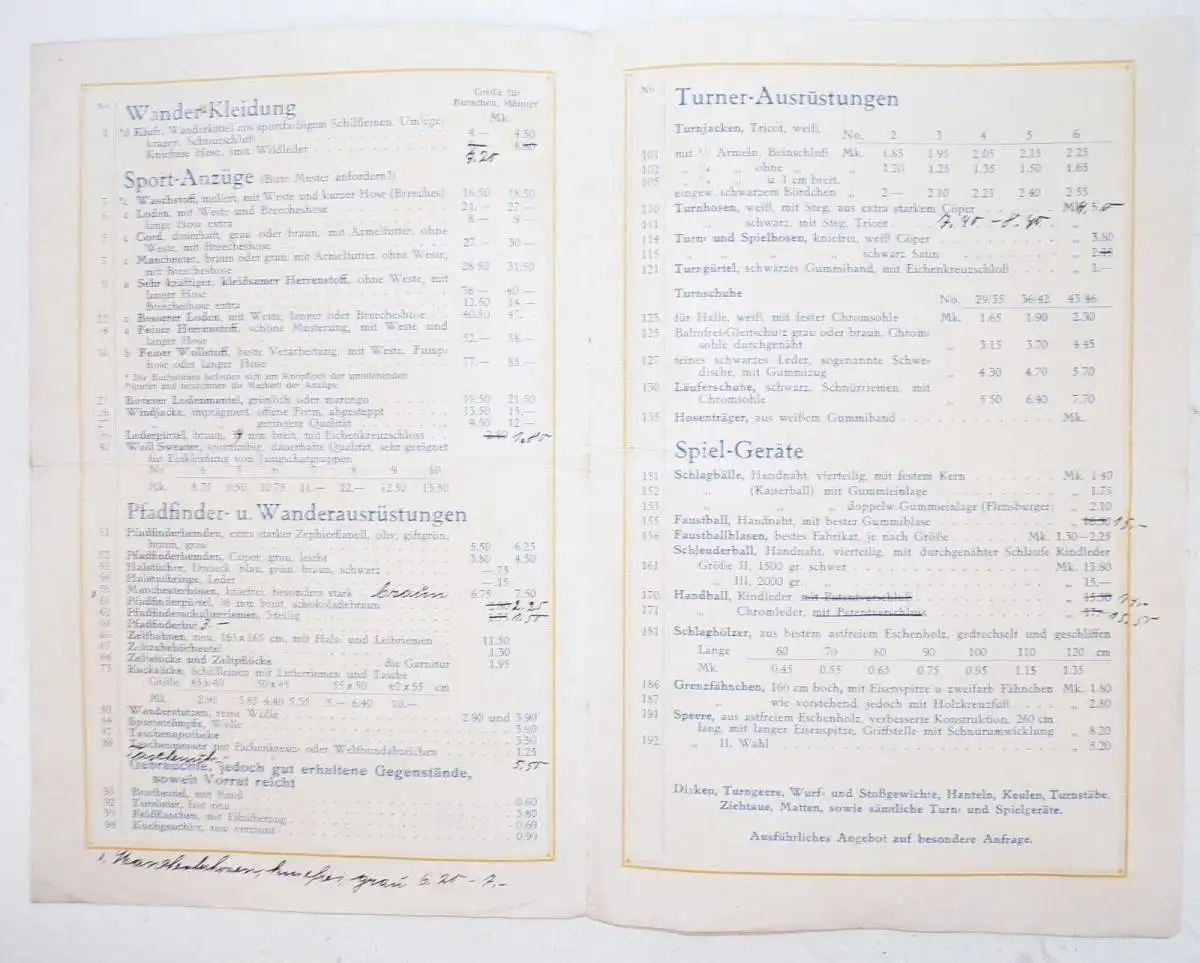 No.
Größe für
Burschen, Männer
Wander-Kleidung
Mk.
Kluft, Wanderkittel aus sportfarbigem Schilfleinen, Umlege-
kragen, Schnurschluß 4.— 4.50
Kniefreie Hose, mit Wildleder
7.20
Sport-Anzüge (Bitte Muster anfordern!)
Waschstoff, meliert, mit Weste und kurzer Hose (Breeches) 16.50 18.50
c Loden, mit Weste und Breecheshose 24.— 27.—
lange Hose extra 8.— 9.—
c Cord, dauerhaft, grau oder braun, mit Armelfutter, ohne
Weste, mit Breecheshose 27.— 30.—
c Manchester, braun oder grau, mit Armelfutter, ohne Weste,
mit Breecheshose 28.50 31.50
a Sehr kräftiger, kleidsamer Herrenstoff, ohne Weste, mit
langer Hose 38.— 40.—
Breecheshose extra 12.50 14.—
c Besserer Loden, mit Weste, langer oder Breecheshose 40.50 47.—
a Feiner Herrenstoff, schöne Musterung, mit Weste und
langer Hose 52.— 58.—
b Feiner Wollstoff, beste Verarbeitung, mit Weste, Pump-
hose oder langer Hose 77.— 85.—
* Die Buchstaben befinden sich am Knopfloch der umstehenden
Figuren und bezeichnen die Machart der Anzüge
Bozener Lodenmantel, grünlich oder marengo 19.50 21.50
Windjacke, imprägniert, offene Form, abgesteppt 13.50 15.—
" geringere Qualität 9.50 12.—
Ledergürtel, braun, mm breit, mit Eichenkreuzschloss 1.80
Woll Sweater, sportfarbig, dauerhafte Qualität, sehr geeignet
für Einkleidung von Jungschargruppen
No. 4 5 6 7 8 9 10
Mk. 8.75 9.50 10.75 11.— 12.— 12.50 13.50
Pfadfinder- u. Wanderausrüstungen
51 Pfadfinderhemden, extra starker Zephierflanell, oliv, giftgrün,
braun, grau 5.50 6.25
52 Pfadfinderhemden, Cöper, grau, leicht 3.80 4.50
Halstücher, Dreieck, blau, grün, braun, schwarz —.75
Halstuchringe, Leder —.15
Manchesterhosen, kniefrei, besonders stark braun 6.75 7.50
Pfadfindergürtel, 38 mm breit, schokoladebraun 2.25
Pfadfinderschulterriemen, 3-teilig 1.50
Pfadfinderhut 3.—
Zeltbahnen, neu, 165x165 cm, mit Hals- und Leibriemen 11.50
Zeltzubehörbeutel 1.30
Zeltstöcke und Zeltpflöcke die Garnitur 1.95
Rucksäcke, Schilfleinen mit Lederriemen und Tasche
Größe 50 x 45 55 x 50 62 x 55 cm
Mk. 2.90 3.65 4.40 5.35 5.— 6.40 10.—
Wanderstutzen, reine Wolle 2.90 und 3.90
Sportstrümpfe, Wolle 3.90
Taschenapotheke 3.30
Taschenmesser mit Eichenkreuz- oder Weltbundabzeichen 1.25
5.50
Gebrauchte, jedoch gut erhaltene Gegenstände,
soweit Vorrat reicht
Brotbeutel, mit Band 0.60
Tornister, fast neu 3.80
Feldflaschen, mit Filzüberzug 0.60
Kochgeschirr, neu verzinnt 0.90
grau 6.20 – 7.-
No.
Turner-Ausrüstungen
Turnjacken, Tricot, weiß, No. 2 3 4 5 6
101 mit ¼ Armeln, Beinschluß Mk. 1.85 1.95 2.05 2.15 2.25
102 " ¼ " ohne " " 1.20 1.25 1.35 1.50 1.65
105 " ¼ " " u. 1 cm breit.
eingew. schwarzem Bördchen " 2.— 2.10 2.25 2.40 2.55
110 Turnhosen, weiß, mit Steg, aus extra starkem Cöper Mk.
111 " schwarz, mit Steg, Tricot 7.40 – 8.40 "
114 Turn- und Spielhosen, kniefrei, weiß Cöper " 3.80
115 " " " " schwarz Satin "
121 Turngürtel, schwarzes Gummiband, mit Eichenkreuzschloß " 1.—
Turnschuhe No. 29/35 36/42 43/46
123 für Halle, weiß, mit fester Chromsohle Mk. 1.65 1.90 2.30
125 Bahnfrei-Gleitschutz grau oder braun, Chrom-
sohle durchgenäht " 3.15 3.70 4.45
127 feines schwarzes Leder, sogenannte Schwe-
dische, mit Gummizug " 4.30 4.70 5.70
130 Läuferschuhe, schwarz, Schnürriemen, mit
Chromsohle " 5.50 6.40 7.70
135 Hosenträger, aus weißem Gummiband Mk.
Spiel-Geräte
151 Schlagbälle, Handnaht, vierteilig, mit festem Kern Mk. 1.40
152 " (Kaiserball) mit Gummieinlage " 1.75
153 " " " doppelw. Gummieinlage (Flensburger) " 2.10
155 Faustball, Handnaht, mit bester Gummiblase " 16.50 15.—
156 Faustballblasen, bestes Fabrikat, je nach Größe Mk. 1.30—2.25
Schleuderball, Handnaht, vierteilig, mit durchgenähter Schlaufe Rindleder
161 Größe II, 1500 gr. schwer Mk. 13.80
" III, 2000 gr. " " 15.—
170 Handball, Rindleder mit Patentverschluß " 15.50
171 " Chromleder, mit Patentverschluss " 15.50
181 Schlaghölzer, aus bestem astfreiem Eschenholz, gedrechselt und geschliffen
Länge 60 70 80 90 100 110 120 cm
Mk. 0.45 0.55 0.65 0.75 0.95 1.15 1.35
186 Grenzfähnchen, 160 cm hoch, mit Eisenspitze u. zweifarb. Fähnchen Mk. 1.80
187 " wie vorstehend, jedoch mit Holzkreuzfuß " 2.80
191 Speere, aus astfreiem Eschenholz, verbesserte Konstruktion, 260 cm
lang, mit langer Eisenspitze, Griffstelle mit Schnurumwicklung " 8.20
192 " II. Wahl " 5.20
Disken, Turngeere, Wurf- und Stoßgewichte, Hanteln, Keulen, Turnstäbe,
Ziehtaue, Matten, sowie sämtliche Turn- und Spielgeräte.
Ausführliches Angebot auf besondere Anfrage.